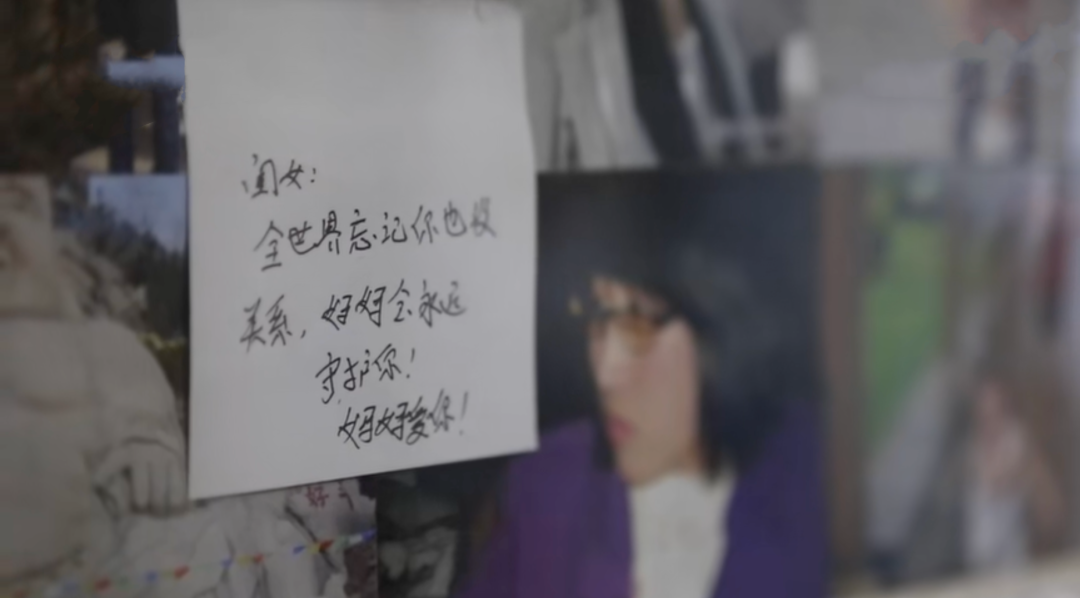 闺女:
全世界忘记你也没
关系,妈妈会永远
守护你!
妈妈爱你!
好